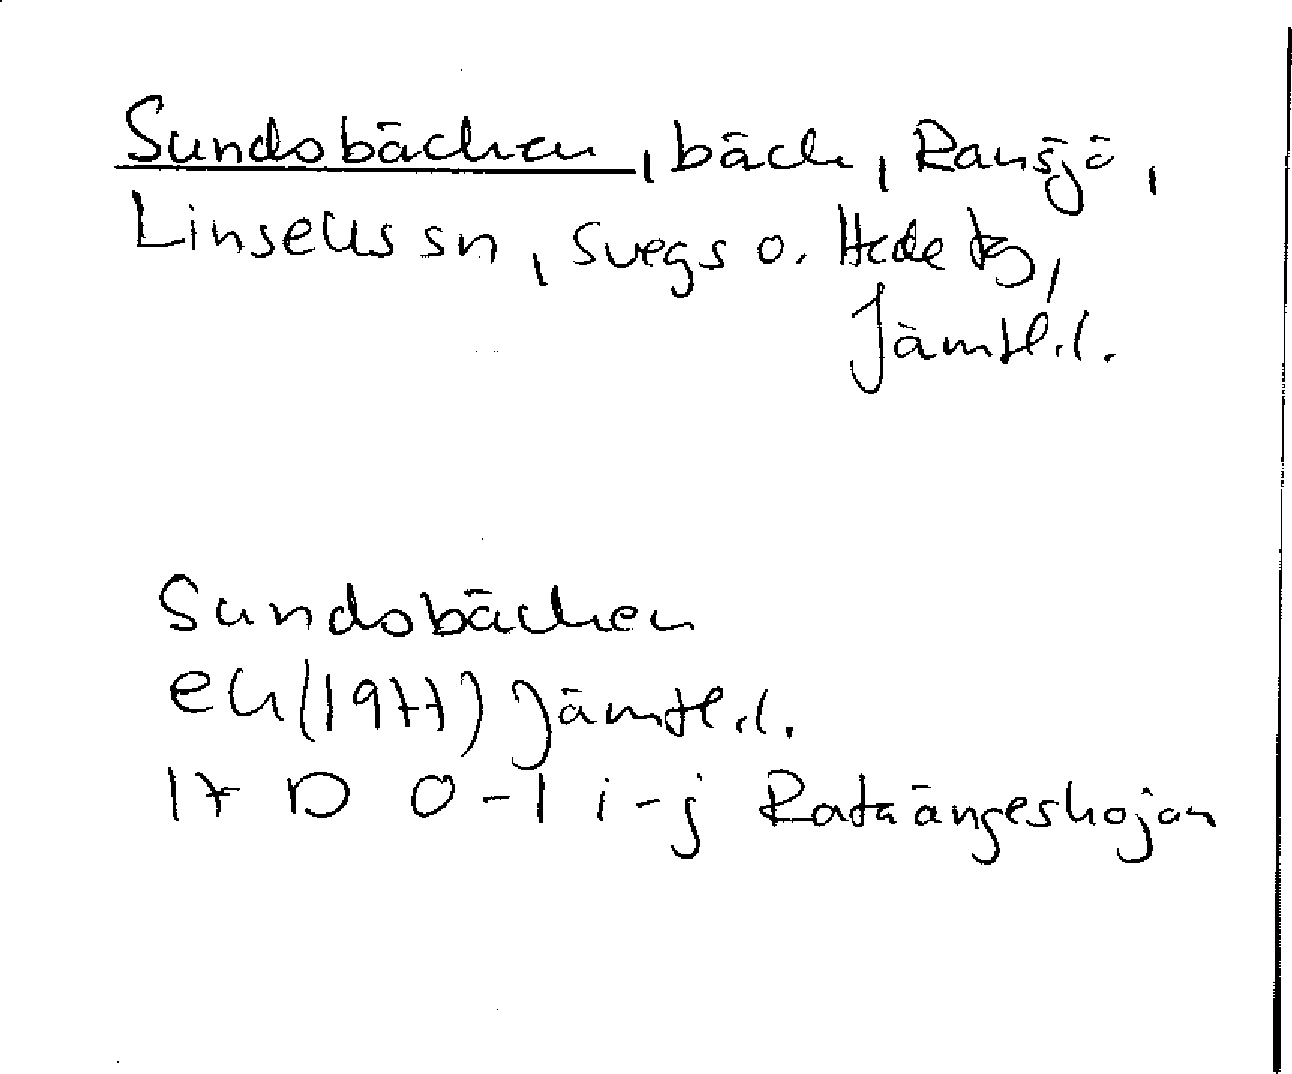 Sundsbäcken, bäck, Ransjö,
Linsells sn, Svegs o. Hede tg,
Jämtl. l.
Sundsbäcken
ek (1977) Jämtl. l.
17 D 0-1 i-j Rataängeskojan